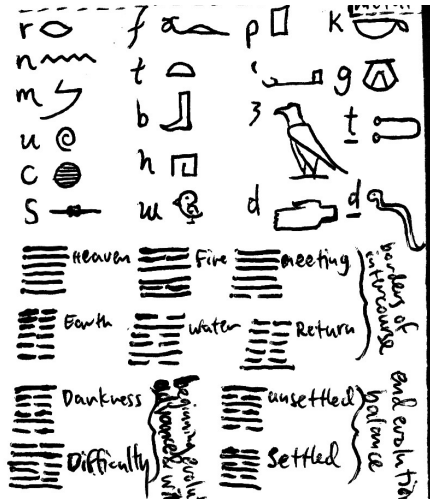 r 𓂋 f 𓆑 p 𓊪 k 𓎡
n 𓈖 t 𓏏 ʿ 𓂝 g 𓎼
m 𓐝 b 𓃀 3 𓄿 ṯ 𓍿
u 𓏲 h 𓉔
c 𓐍 w 𓅱 d 𓂧 ḏ 𓆓
S 𓊃
Heaven Fire meeting
Earth Water Return
borders of
intercourse
Darkness unsettled
Difficulty Settled
beginning evolu
end evolution
balance